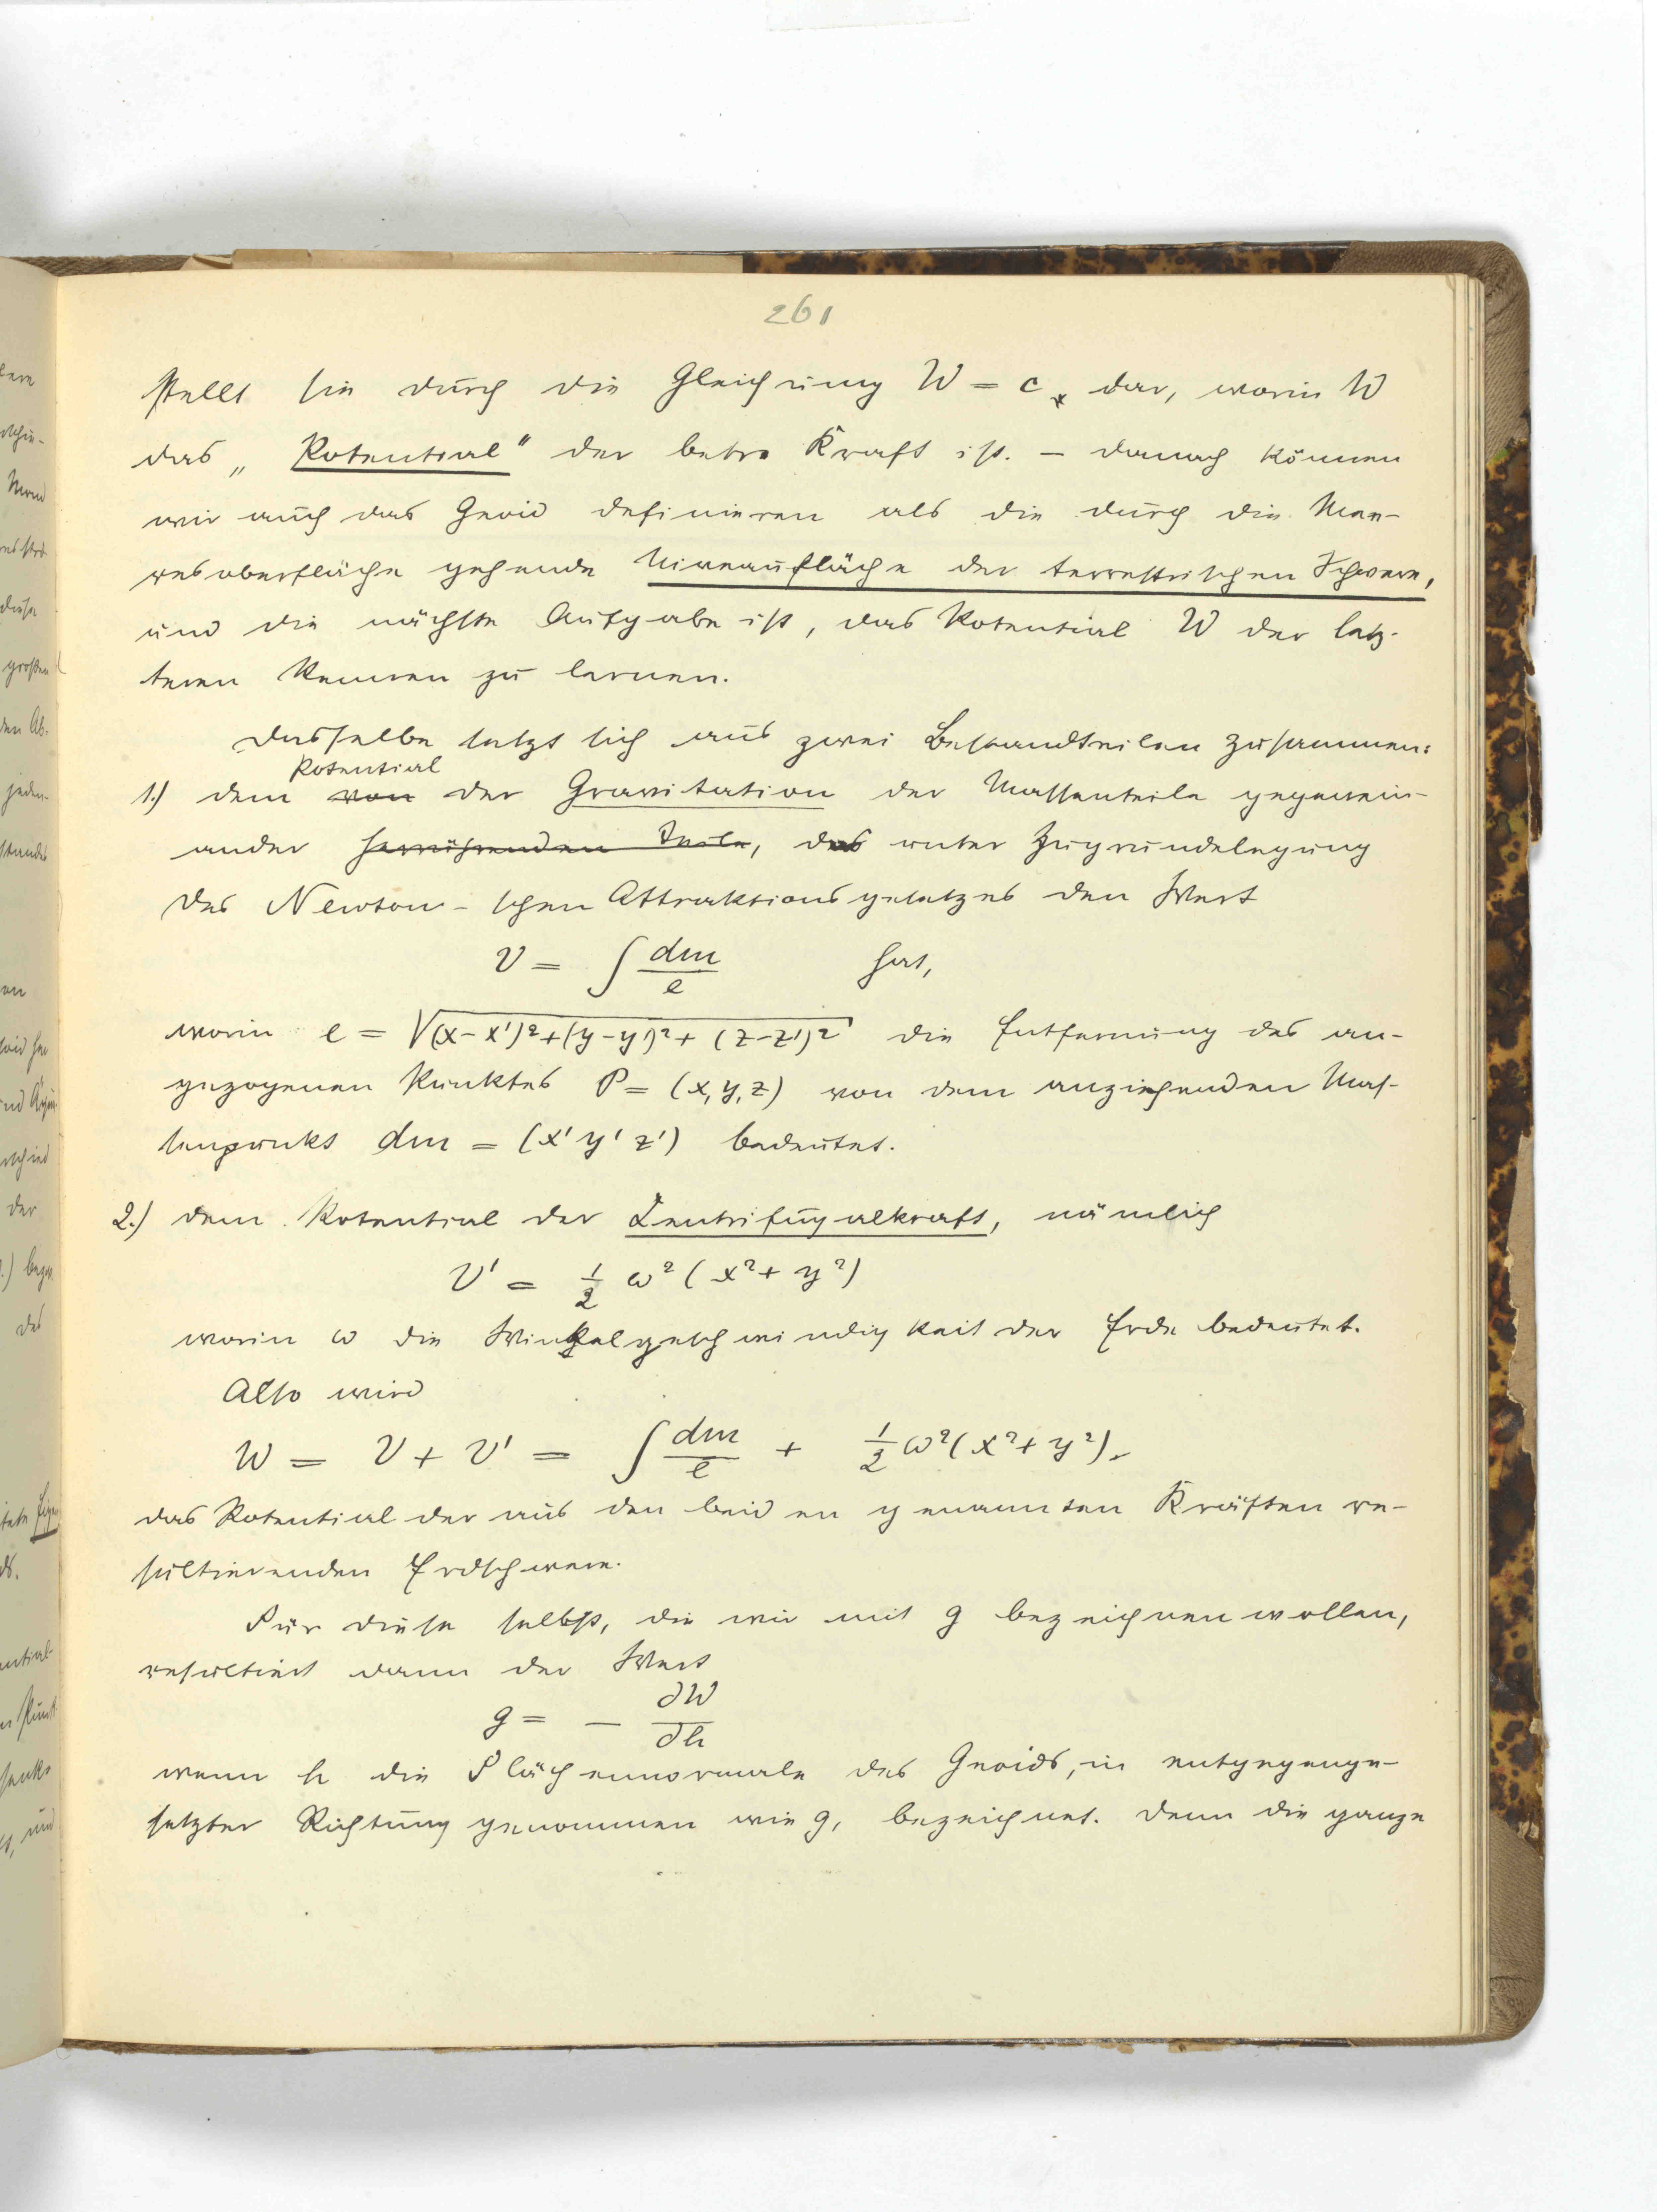 261
stellt sie durch die Gleichung W = c dar, worin W
das „Potential" der betr. Kraft ist. – Danach können
wir auch das Geoid definieren als die durch die Mee-
resoberfläche gehende Niveaufläche der terrestrischen Schwere,
und die nächste Aufgabe ist, das Potential W der letz-
teren kennen zu lernen.
Dasselbe setzt sich aus zwei Bestandteilen zusammen:
Potential
1.) dem von der Gravitation der Massenteile gegenein-
ander herrührenden Teile, das unter Zugrundelegung
des Newton-schen Attraktionsgesetzes den Wert
V = ∫ dm/e hat,
worin e = √(x-x')²+(y-y')²+(z-z')² die Entfernung des an-
gezogenen Punktes P = (x, y, z) von dem anziehenden Mas-
senpunkt dm = (x' y' z') bedeutet.
2.) dem Potential der Zentrifugalkraft, nämlich
V' = 1/2 ω² (x² + y²)
worin ω die Winkelgeschwindigkeit der Erde bedeutet.
Also wird
W = V + V' = ∫ dm/e + 1/2 ω² (x² + y²),
das Potential der aus den beiden genannten Kräften re-
sultierenden Erdschwere.
Für diese selbst, die wir mit g bezeichnen wollen,
resultiert dann der Wert
g = – ∂W/∂h
wenn h die Flächennormale des Geoids, in entgegenge-
setzter Richtung genommen wie g, bezeichnet. Denn die ganze